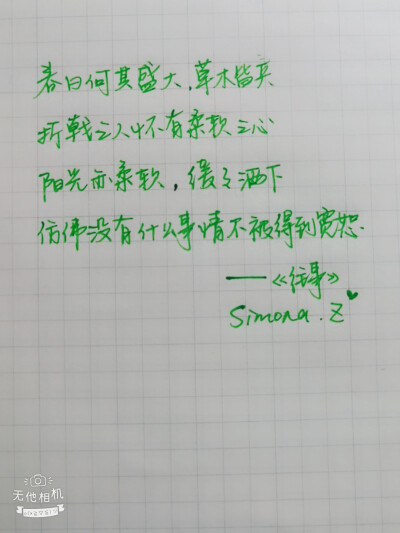 春日何其盛大,草木皆兵
折戟之人怀有柔软之心
阳光亦柔软，缓々洒下
仿佛没有什么事情不被得到宽恕.
——《往事》
Simona.Z
无他相机